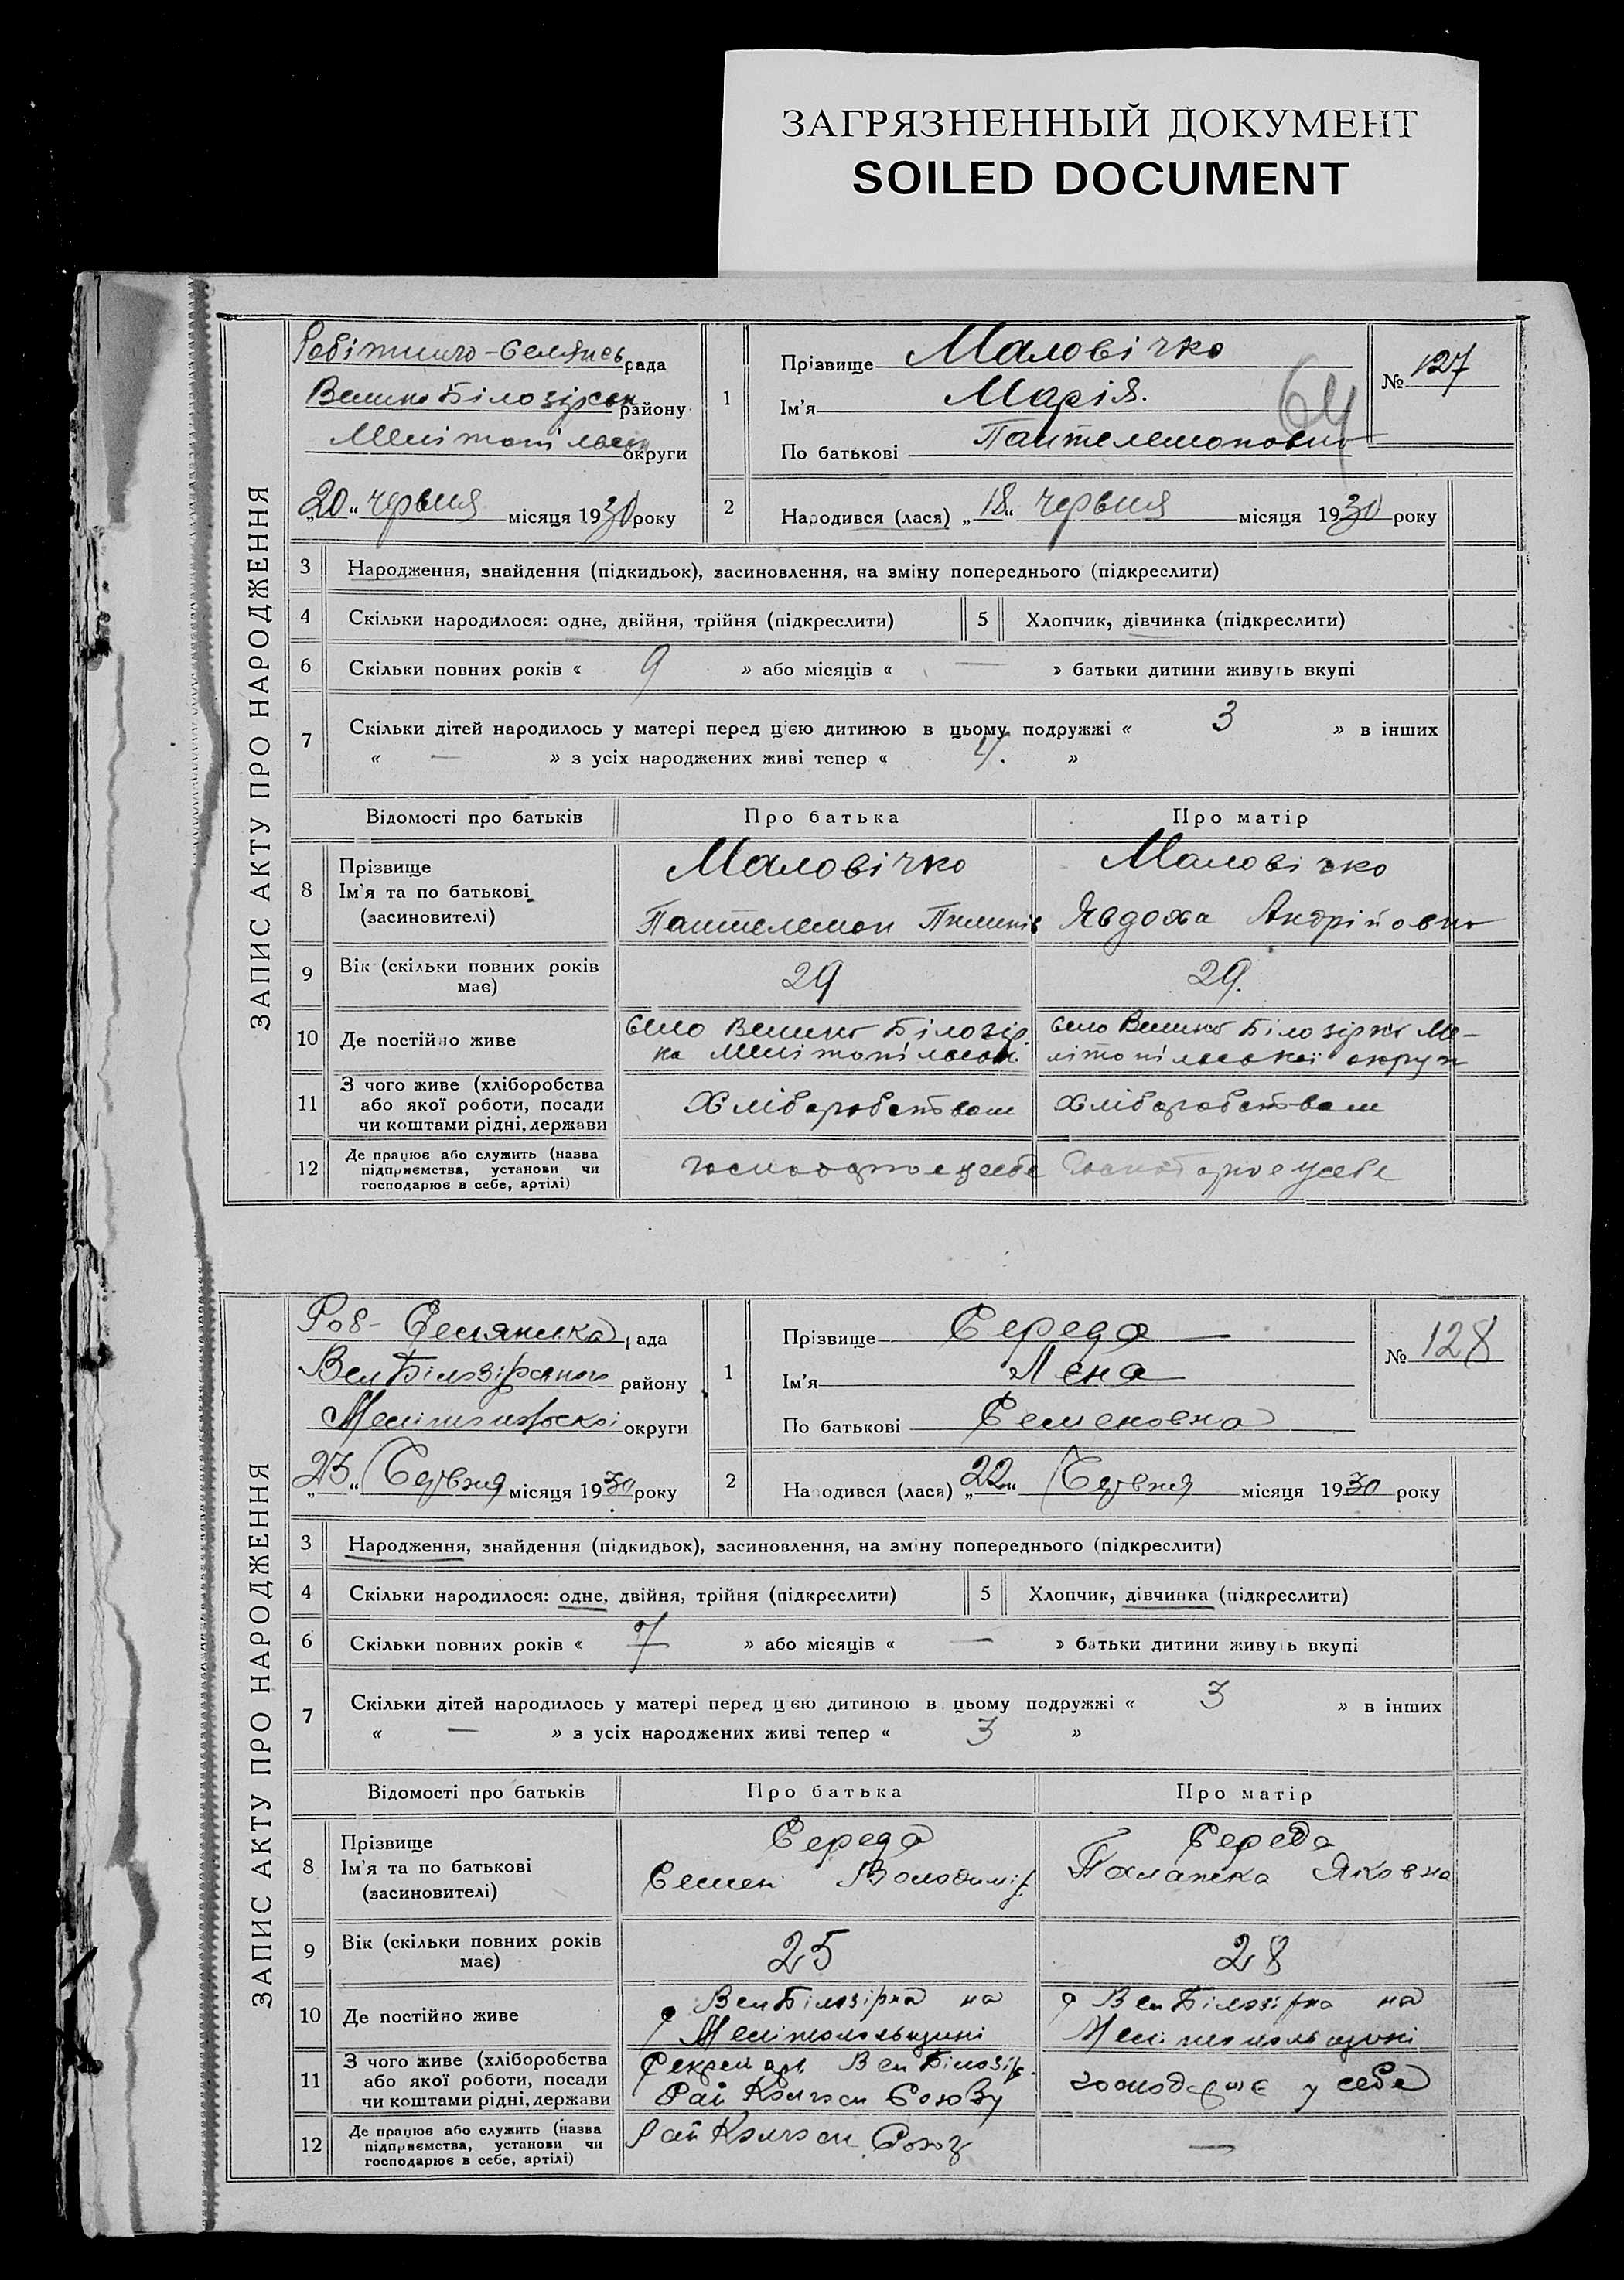 ЗАГРЯЗНЕННЫЙ ДОКУМЕНТ
SOILED DOCUMENT
ЗАПИС АКТУ ПРО НАРОДЖЕННЯ
Робітничо-Селянсь рада
Велико Білозірськ району
Мелітопільськ округи
„20“ червня місяця 1930 року
1
Прізвище Маловічко
Ім'я Марія.
По батькові Пантелемоновно
№ 127
64
2
Народився (лася) „18“ червня місяця 1930 року
3 Народження, знайдення (підкидьок), засиновлення, на зміну попереднього (підкреслити)
4 Скільки народилося: одне, двійня, трійня (підкреслити)
5 Хлопчик, дівчинка (підкреслити)
6 Скільки повних років « 9 » або місяців « — » батьки дитини живуть вкупі
7 Скільки дітей народилось у матері перед цією дитиною в цьому подружжі « 3 » в інших
« — » з усіх народжених живі тепер « 4. »
Відомості про батьків Про батька Про матір
8 Прізвище
Ім'я та по батькові
(засиновителі)
Маловічко
Пантелемон
Маловічко
Явдоха Андрійовно
9 Вік (скільки повних років
має)
29
29.
10 Де постійно живе
село Велико Білозір
ка Мелітопільськ.
село Велико Білозірка Ме-
літопільської округи
11 З чого живе (хліборобства
або якої роботи, посади
чи коштами рідні, держави
Хліборобством
Хліборобством
12 Де працює або служить (назва
підприємства, установи чи
господарює в себе, артілі)
господарює у себе
господарює у себе
ЗАПИС АКТУ ПРО НАРОДЖЕННЯ
Роб-Селянська рада
Вел Білозірського району
Мелітопольської округи
„23“ Червня місяця 1930 року
1
Прізвище Середа
Ім'я Лена
По батькові Семеновна
№ 128
2
Народився (лася) „22“ Червня місяця 1930 року
3 Народження, знайдення (підкидьок), засиновлення, на зміну попереднього (підкреслити)
4 Скільки народилося: одне, двійня, трійня (підкреслити)
5 Хлопчик, дівчинка (підкреслити)
6 Скільки повних років « 7 » або місяців « — » батьки дитини живуть вкупі
7 Скільки дітей народилось у матері перед цією дитиною в цьому подружжі « 3 » в інших
« — » з усіх народжених живі тепер « 3 »
Відомості про батьків Про батька Про матір
8 Прізвище
Ім'я та по батькові
(засиновителі)
Середа
Семен Володимір
Середа
Палажка Яковна
9 Вік (скільки повних років
має)
25
28
10 Де постійно живе
с Вел Білозірка на
Мелітопольщині
с Вел Білозірка на
Мелітопольщині
11 З чого живе (хліборобства
або якої роботи, посади
чи коштами рідні, держави
Секретар Вел Білозір.
Рай Колгосп Союзу
господарює у себе
12 Де працює або служить (назва
підприємства, установи чи
господарює в себе, артілі)
Рай Колгосп Союз
—